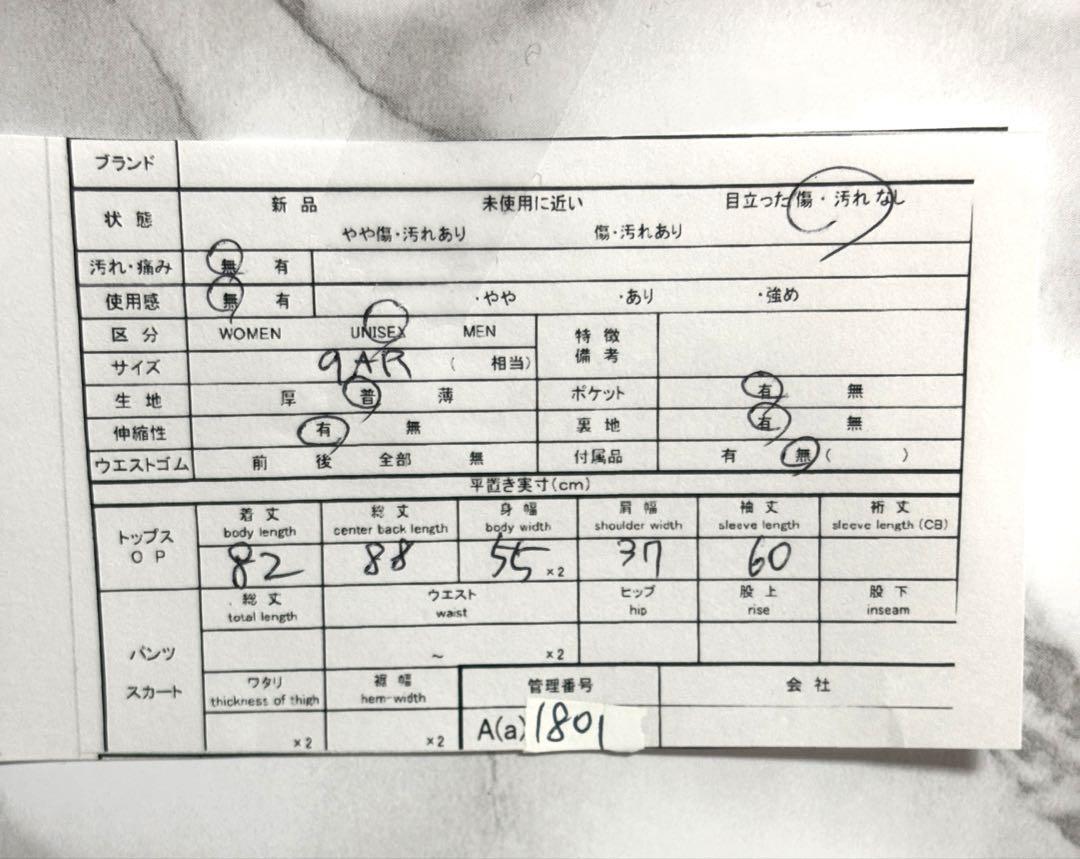 ブランド
状態 新品 未使用に近い 目立った傷・汚れなし
やや傷・汚れあり 傷・汚れあり
汚れ・痛み 無 有
使用感 無 有 ・やや ・あり ・強め
区分 WOMEN UNISEX MEN 特徴備考
サイズ 9AR ( 相当)
生地 厚 普 薄 ポケット 有 無
伸縮性 有 無 裏地 有 無
ウエストゴム 前 後 全部 無 付属品 有 無 ( )
平置き実寸(cm)
トップス OP
着丈 総丈 身幅 肩幅 袖丈 裄丈
body length center back length body width shoulder width sleeve length sleeve length (CB)
82 88 55 ×2 37 60
パンツ スカート
総丈 ウエスト ヒップ 股上 股下
total length waist hip rise inseam
~ ×2
ワタリ 裾幅 管理番号 会社
thickness of thigh hem-width
×2 ×2 A(a) 1801